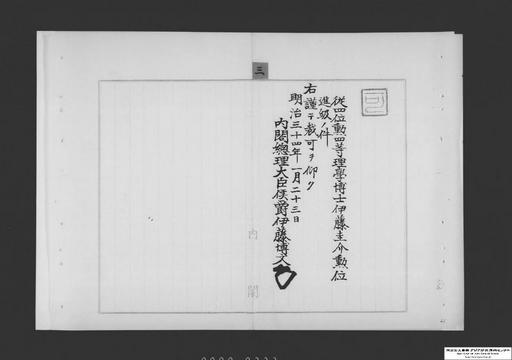 三
可
従四位勲四等理學博士伊藤圭介勲位
進級ノ件
右謹テ裁可ヲ仰ク
明治三十四年一月二十三日
内閣總理大臣侯爵伊藤博文
内閣